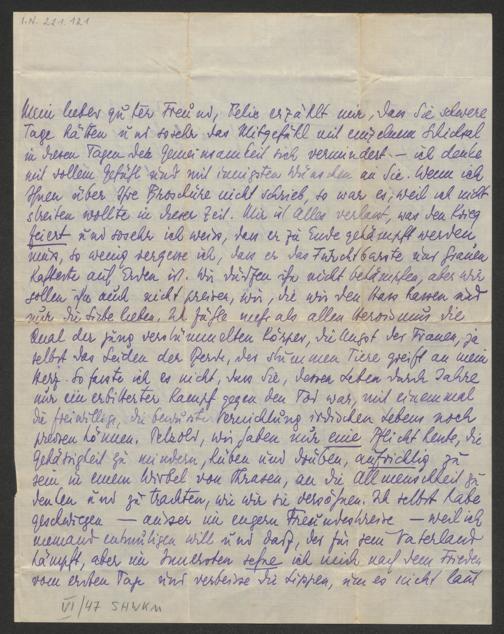 I.N. 221.121
Mein lieber guter Freund, Felix erzählt mir, dass Sie schwere
Tage hätten und sosehr das Mitgefühl mit einzelnem Schicksal
in diesen Tagen der Gemeinsamkeit sich vermindert — ich denke
mit vollem Gefühl und mit innigsten Wünschen an Sie. Wenn ich
Ihnen über Ihre Broschüre nicht schrieb, so war es, weil ich nicht
streiten wollte in dieser Zeit. Mir ist alles verhasst, was den Krieg
feiert und sosehr ich weiss, dass er zu Ende gekämpft werden
muss, so wenig vergesse ich, dass er das Furchtbarste und Grauen
hafteste auf Erden ist. Wir dürfen ihn nicht bekämpfen, aber wir
sollen ihn auch nicht preisen, wir, die wir den Hass hassen und
nur die Liebe lieben. Ich fühle mehr als allen Heroismus die
Qual der jung verstümmelten Körper, die Angst der Frauen, ja
selbst das Leiden der Pferde, des stummen Tiere greift an mein
Herz. So fasste ich es nicht, dass Sie, dessen Leben durch Jahre
nur ein erbitterter Kampf gegen den Tod war, mit einemmal
die freiwillige, die bewusste Vernichtung irdischen Lebens noch
preisen können. Petzold, wir haben nur eine Pflicht heute, die
Gehässigkeit zu mindern, hüben und drüben, aufrichtig zu
sein in einem Wirbel von Phrasen, an die Allmenschheit zu
denken und zu trachten, wie wir sie versöhnen. Ich selbst habe
geschwiegen — ausser im engern Freundeskreise — weil ich
niemand entmutigen will und darf, der für sein Vaterland
kämpft, aber im Innersten sehne ich mich nach dem Frieden
vom ersten Tage und verbeisse die Lippen, um es nicht laut
VI/47 SHWKM